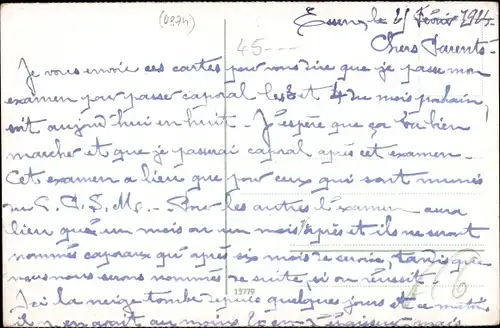 (0374)
Essen, le 25 Février 1924
45 - - -
Chers Parents
Je vous envoie ces cartes pour vous dire que je passe mon
examen pour passer caporal les 3 et 4 du mois prochain,
soit aujourd'hui en huit. J'espère que ça va bien
marcher et que je passerai caporal après cet examen.
Cet examen a lieu que pour ceux qui sont munis
du C.P.S.M. - Pour les autres l'examen aura
lieu que un mois ou un mois ½ après et ils ne seront
nommés caporaux qu'après six mois de service, tandis que
nous nous serons nommés de suite, si on réussit.
13779
Ici la neige tombe depuis quelques jours et ce matin
il y en avait au moins